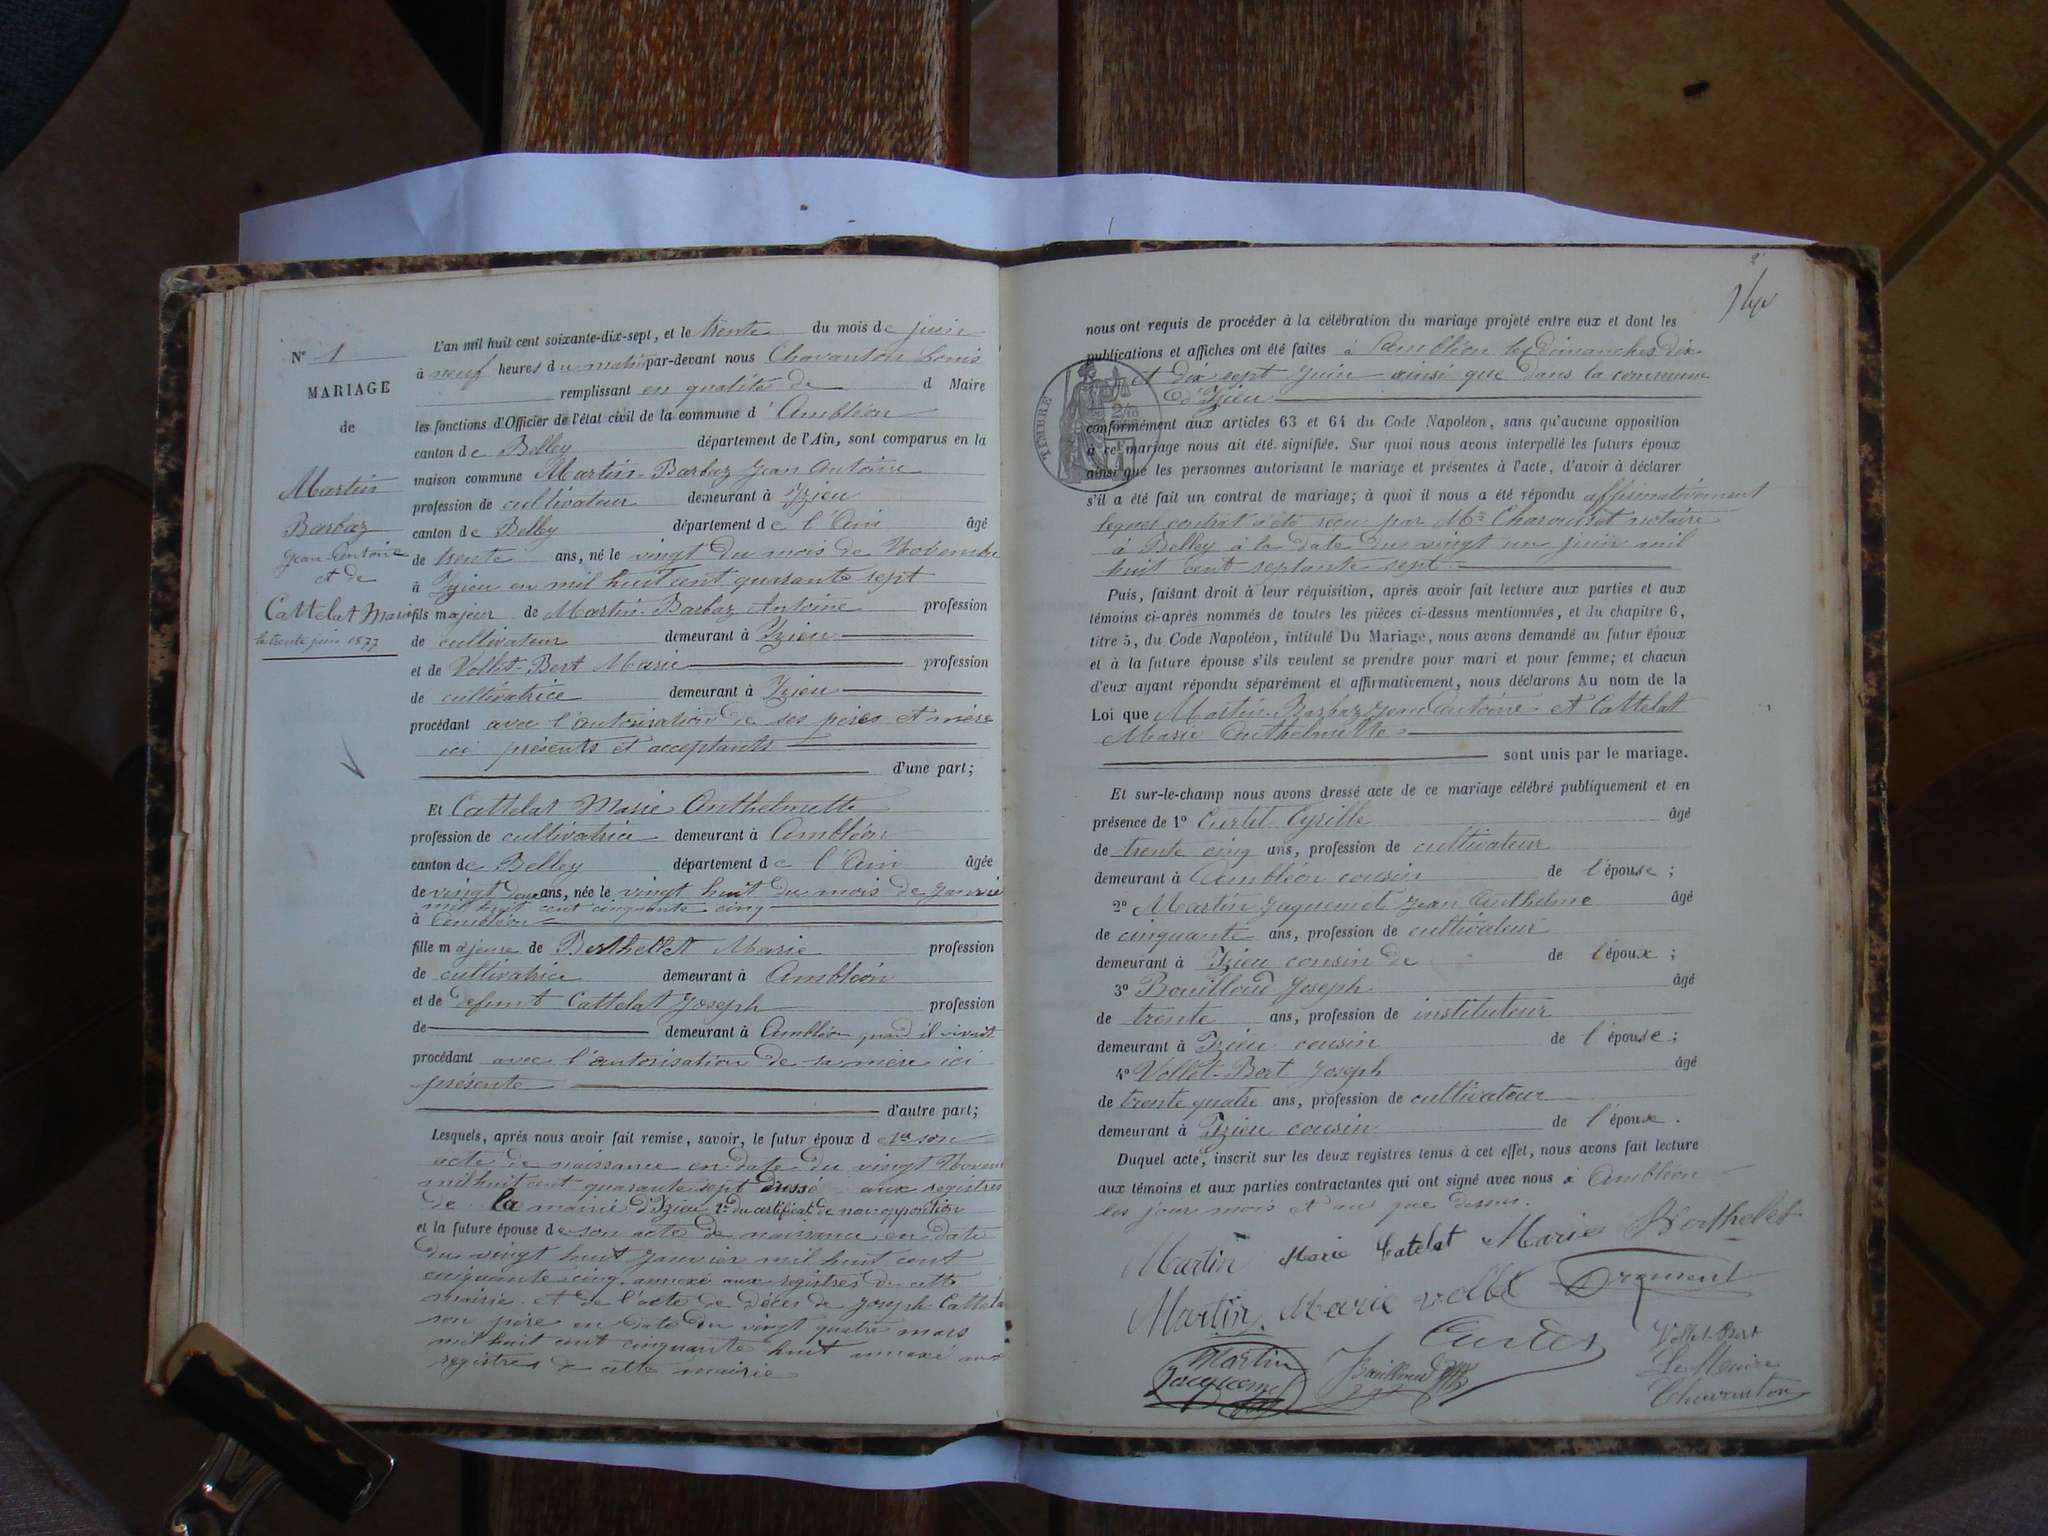 N° 1
MARIAGE
de
Martin
Barbaz
Jean Antoine
et de
Cattelat Marie
le trente juin 1877
L'an mil huit cent soixante-dix-sept, et le trente du mois de juin
à neuf heures du matin par-devant nous Chavanton Louis
remplissant en qualité de d Maire
les fonctions d'Officier de l'état civil de la commune d'Ambléon
canton de Belley département de l'Ain, sont comparus en la
maison commune Martin-Barbaz Jean Antoine
profession de cultivateur demeurant à Izieu
canton de Belley département de l'Ain âgé
de trente ans, né le vingt du mois de Novembre
à Izieu en mil huit cent quarante sept
fils majeur de Martin-Barbaz Antoine profession
de cultivateur demeurant à Izieu
et de Vollet-Bert Marie profession
de cultivatrice demeurant à Izieu
procédant avec l'autorisation de ses pères et mère
ici présents et acceptants
d'une part;
Et Cattelat Marie Anthelmette
profession de cultivatrice demeurant à Ambléon
canton de Belley département de l'Ain âgée
de vingt deux ans, née le vingt huit du mois de Janvier
mil huit cent cinquante cinq
à Ambléon
fille majeure de Berthellet Marie profession
de cultivatrice demeurant à Ambléon
et de defunt Cattelat Joseph profession
de demeurant à Ambléon, quand il vivait
procédant avec l'autorisation de sa mère ici
présente
d'autre part;
Lesquels, après nous avoir fait remise, savoir, le futur époux de son
acte de naissance en date du vingt Novem
mil huit cent quarante sept dressé aux registres
de la mairie d'Izieu 2° du certificat de non opposition
et la future épouse de son acte de naissance en date
du vingt huit Janvier mil huit cent
cinquante cinq, annexé aux registres de cette
mairie. et de l'acte de décès de Joseph Cattelat
son père en date du vingt quatre mars
mil huit cent cinquante huit annexé aux
registres de cette mairie
nous ont requis de procéder à la célébration du mariage projeté entre eux et dont les
publications et affiches ont été faites à Ambléon les dimanches dix
et dix sept Juin ainsi que dans la commune
d'Izieu
TIMBRE
conformément aux articles 63 et 64 du Code Napoléon, sans qu'aucune opposition
à ce mariage nous ait été signifiée. Sur quoi nous avons interpellé les futurs époux
ainsi que les personnes autorisant le mariage et présentes à l'acte, d'avoir à déclarer
s'il a été fait un contrat de mariage; à quoi il nous a été répondu affirmativement
lequel contrat a été reçu par Me Charousset notaire
à Belley à la date du vingt un juin mil
huit cent septante sept
Puis, faisant droit à leur réquisition, après avoir fait lecture aux parties et aux
témoins ci-après nommés de toutes les pièces ci-dessus mentionnées, et du chapitre 6,
titre 5, du Code Napoléon, intitulé Du Mariage, nous avons demandé au futur époux
et à la future épouse s'ils veulent se prendre pour mari et pour femme; et chacun
d'eux ayant répondu séparément et affirmativement, nous déclarons Au nom de la
Loi que Martin-Barbaz Jean Antoine et Cattelat
Marie Anthelmette
sont unis par le mariage.
Et sur-le-champ nous avons dressé acte de ce mariage célébré publiquement et en
présence de 1° Curtet Cyrille âgé
de trente cinq ans, profession de cultivateur
demeurant à Ambléon cousin de l'épouse;
2° Martin Jaquemet Jean Anthelme âgé
de cinquante ans, profession de cultivateur
demeurant à Izieu cousin de de l'époux;
3° Bouilloud Joseph âgé
de trente ans, profession de instituteur
demeurant à Izieu cousin de l'épouse;
4° Vollet-Bert Joseph âgé
de trente quatre ans, profession de cultivateur
demeurant à Izieu cousin de l'époux.
Duquel acte, inscrit sur les deux registres tenus à cet effet, nous avons fait lecture
aux témoins et aux parties contractantes qui ont signé avec nous à Ambléon
les jour mois et an que dessus.
Martin Marie Catelat Marie Berthelet
Martin Marie vollet
Curtet
Vollet-Bert
Martin
Jacquemet
Bouilloud
Le Maire
Chavanton